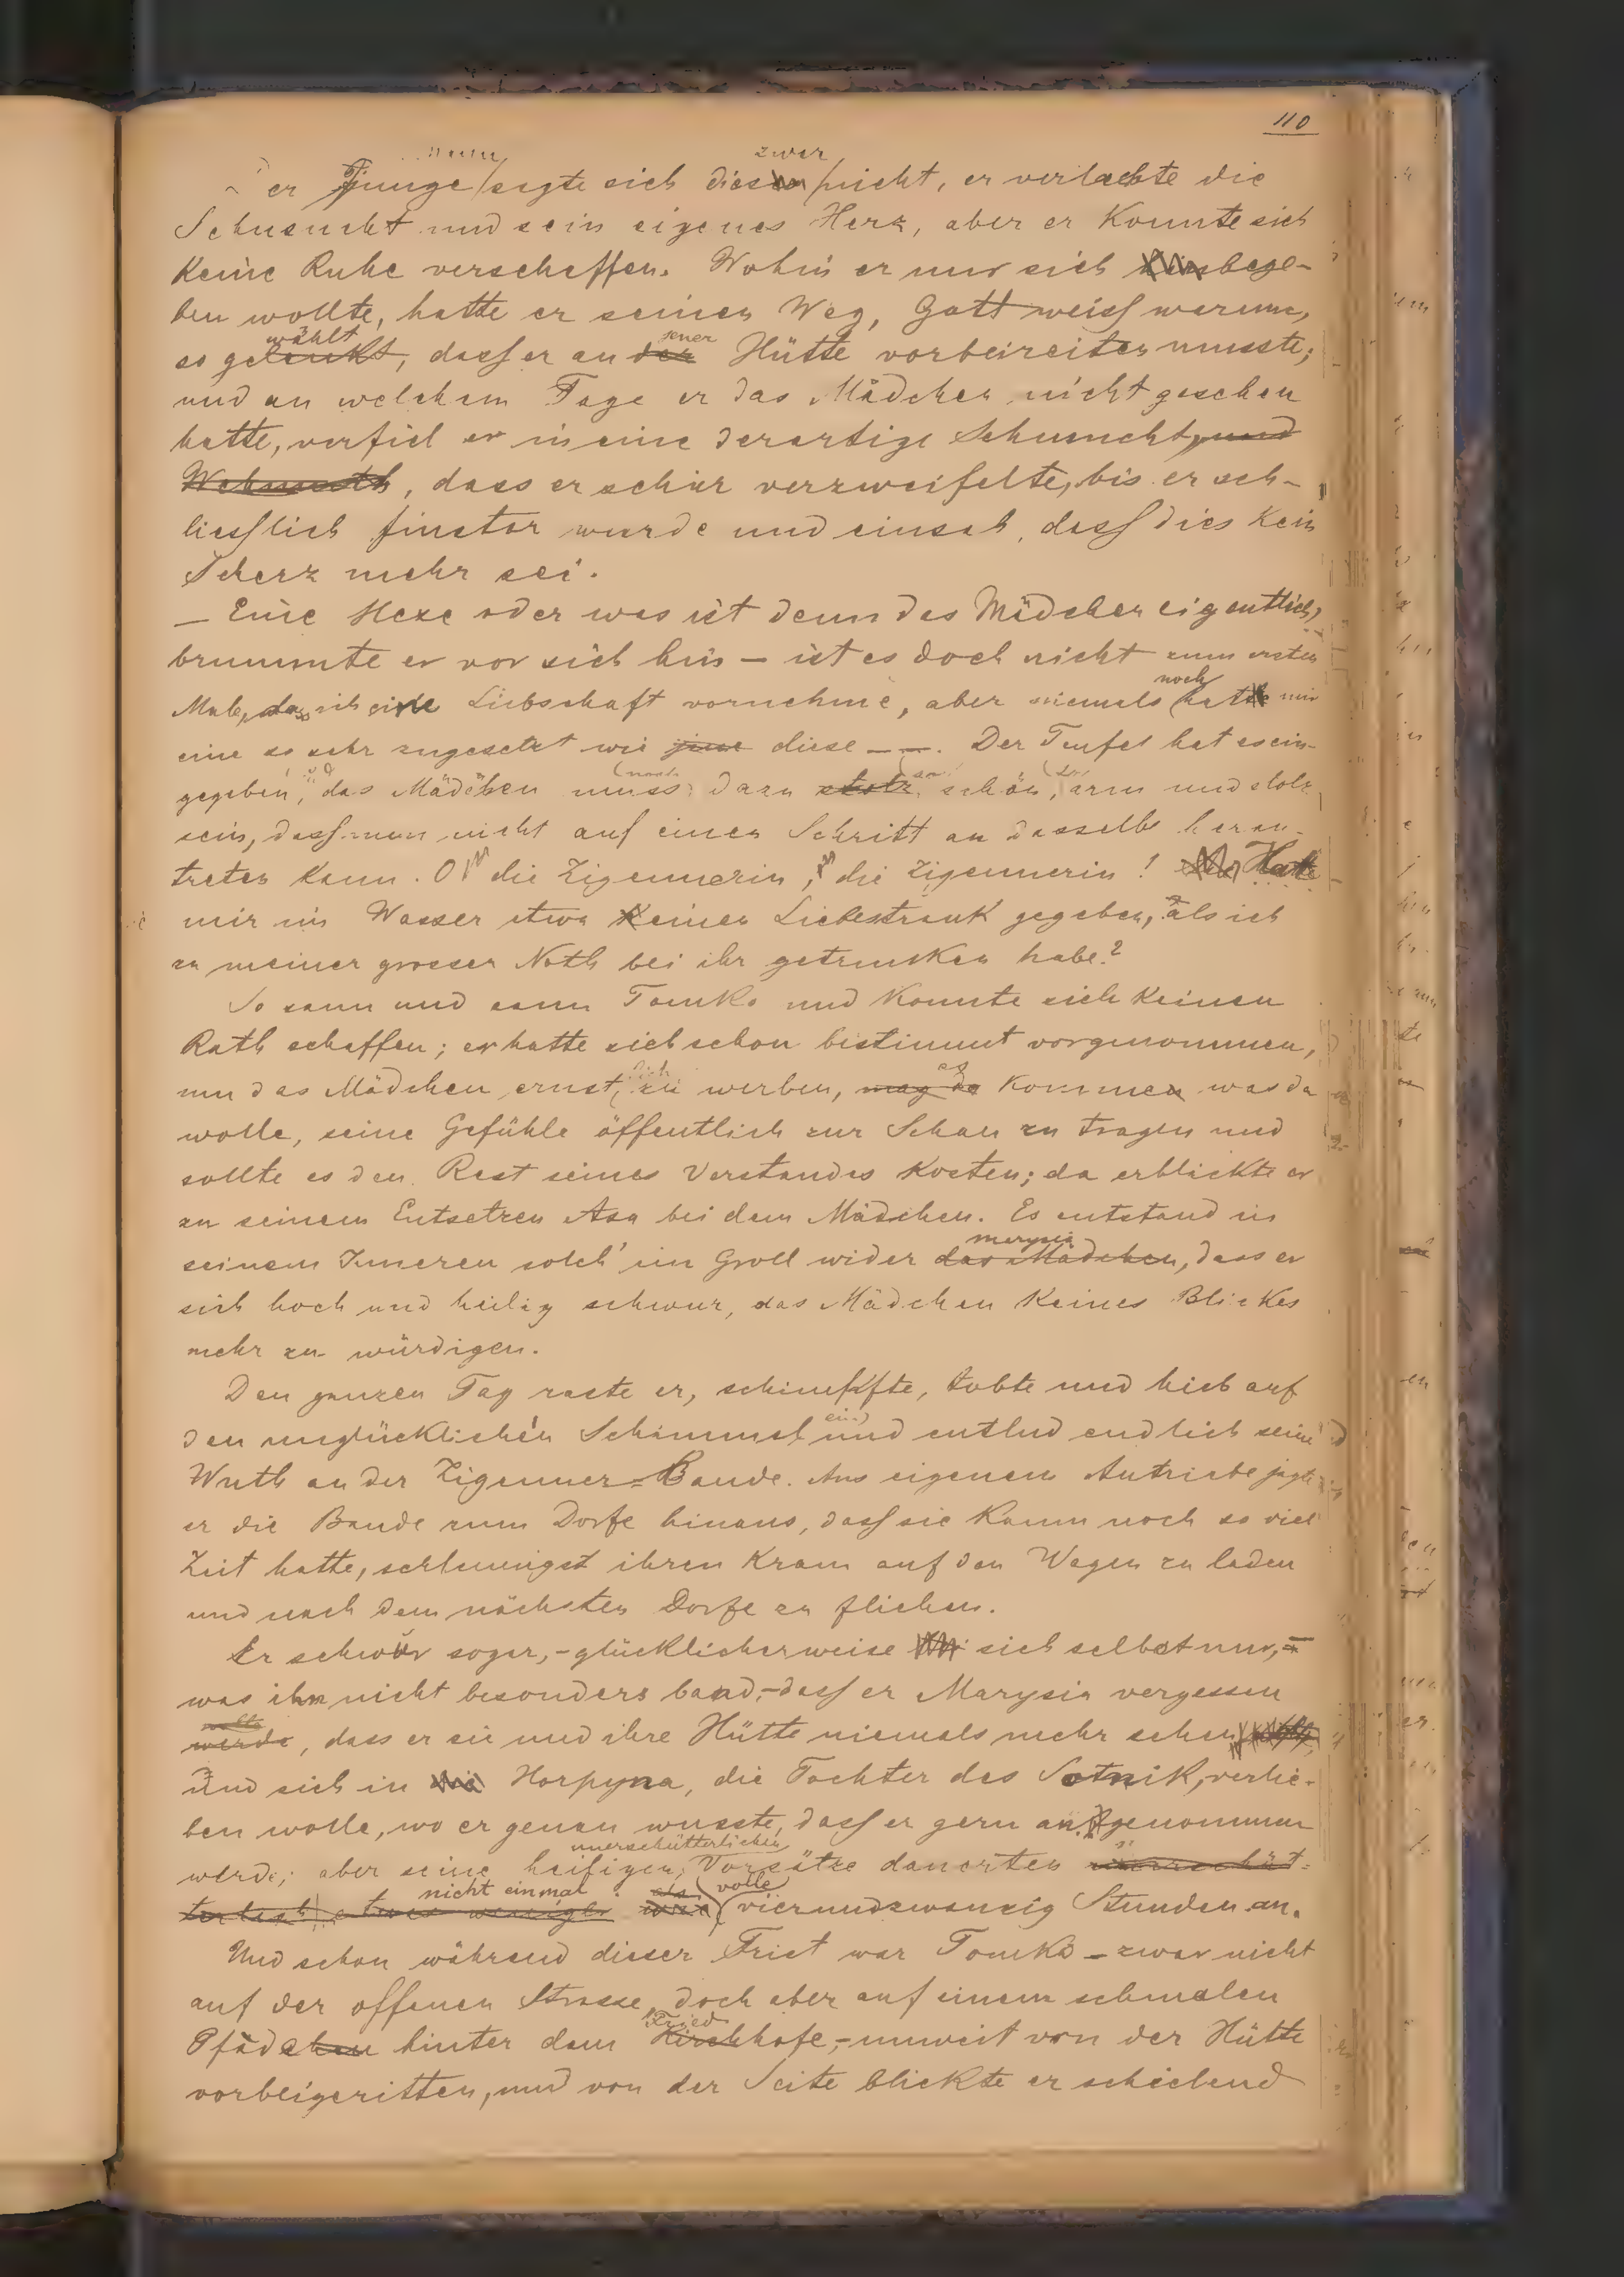 110
zwar
er Junge sagte sich dies nicht, er verlachte die
Sehnsucht und sein eigenes Herz, aber er konnte sich
keine Ruhe verschaffen. Wohin er nur sich bege-
ben wollte, hatte er seinen Weg, Gott weiss warum,
wählt jener
so gelenkt, dass er an der Hütte vorbeireiten musste;
und an welchem Tage er das Mädchen nicht gesehen
hatte, verfiel er in eine derartige Sehnsucht, und
Wehmuth, dass er schier verzweifelte, bis er sch-
liesslich finster wurde und einsah, dass dies kein
Scherz mehr sei.
— Eine Hexe oder was ist denn das Mädchen eigentlich,
brummte er vor sich hin — ist es doch nicht zum ersten
noch
Male, das ich eine Liebschaft vornehme, aber niemals hat mir
eine so sehr zugesetzt wie jene diese — —. Der Teufel hat es ein-
gegeben, das Mädchen muss dazu stolz schön, arm und stolz
sein, dass man nicht auf einen Schritt an dasselbe heran-
treten kann. O die Zigeunerin, die Zigeunerin! Hat
mir im Wasser etwa keinen Liebestrank gegeben, als ich
zu meiner grossen Noth bei ihr getrunken habe?
So sann und sann Tomko und konnte sich keinen
Rath schaffen; er hatte sich schon bestimmt vorgenommen,
lich es
um das Mädchen ernst zu werben, mag da kommen was da
wolle, seine Gefühle öffentlich zur Schau zu tragen und
sollte es den Rest seines Verstandes kosten; da erblickte er
zu seinem Entsetzen Asa bei dem Mädchen. Es entstand in
Marysia
seinem Inneren solch' ein Groll wider das Mädchen, dass er
sich hoch und heilig schwur, das Mädchen keines Blickes
mehr zu würdigen.
Den ganzen Tag raste er, schimpfte, tobte und hieb auf
ein
den unglücklichen Schimmel und entlud endlich seine
Wuth an der Zigeuner-Bande. Aus eigenem Antriebe jagte
er die Bande zum Dorfe hinaus, dass sie kaum noch so viel
Zeit hatte, schleunigst ihren Kram auf den Wagen zu laden
und nach dem nächsten Dorfe zu fliehen.
Er schwur sogar, - glücklicherweise sich selbst nur, -
was ihn nicht besonders band, - dass er Marysia vergessen
wolle
werde, dass er sie und ihre Hütte niemals mehr sehen
und sich in die Horpyna, die Tochter des Sotnik, verlie-
ben wolle, wo er genau wusste, dass er gern angenommen
unerschütterlichen
werde; aber seine heiligen, Vorsätze dauerten unerschüt-
nicht einmal als volle
terlich etwas weniger wie vierundzwanzig Stunden an.
Und schon während dieser Frist war Tomko — zwar nicht
auf der offenen Strasse, doch aber auf einem schmalen
Fried
Pfädchen hinter dem Kirchhofe, - unweit von der Hütte
vorbeigeritten, und von der Seite blickte er schielend